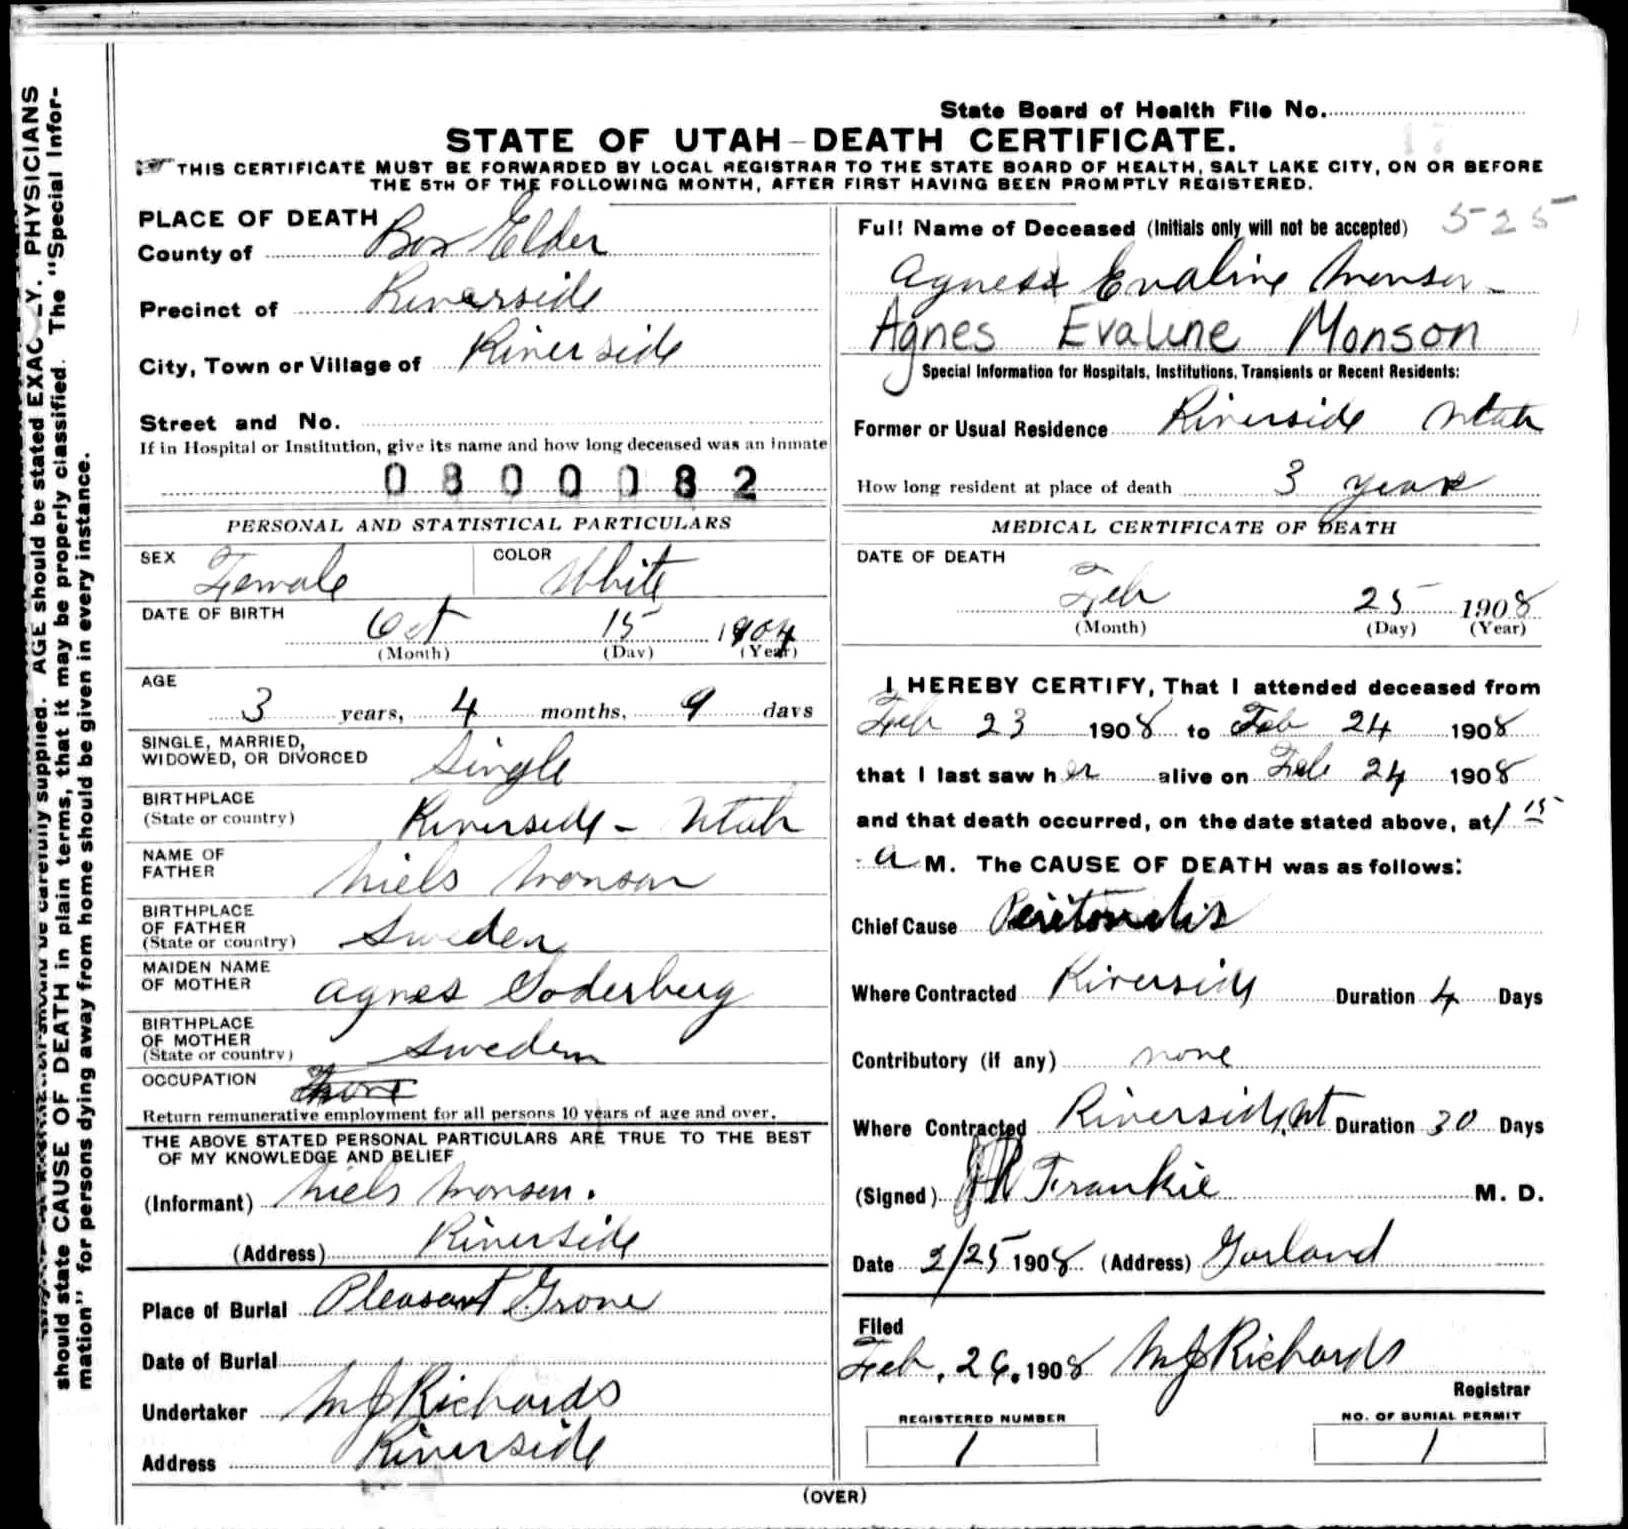 State Board of Health File No.
STATE OF UTAH-DEATH CERTIFICATE.
THIS CERTIFICATE MUST BE FORWARDED BY LOCAL REGISTRAR TO THE STATE BOARD OF HEALTH, SALT LAKE CITY, ON OR BEFORE
THE 5TH OF THE FOLLOWING MONTH, AFTER FIRST HAVING BEEN PROMPTLY REGISTERED.
PLACE OF DEATH
County of Box Elder
Precinct of Riverside
City, Town or Village of Riverside
Street and No.
If in Hospital or Institution, give its name and how long deceased was an inmate
0800082
PERSONAL AND STATISTICAL PARTICULARS
SEX Female COLOR White
DATE OF BIRTH Oct 15 1904
(Month) (Day) (Year)
AGE
3 years, 4 months, 9 days
SINGLE, MARRIED,
WIDOWED, OR DIVORCED Single
BIRTHPLACE
(State or country) Riverside - Utah
NAME OF
FATHER Niels Monson
BIRTHPLACE
OF FATHER
(State or country) Sweden
MAIDEN NAME
OF MOTHER Agnes Soderberg
BIRTHPLACE
OF MOTHER
(State or country) Sweden
OCCUPATION
Return remunerative employment for all persons 10 years of age and over.
THE ABOVE STATED PERSONAL PARTICULARS ARE TRUE TO THE BEST
OF MY KNOWLEDGE AND BELIEF
(Informant) Niels Monson.
(Address) Riverside
Place of Burial Pleasant Grove
Date of Burial
Undertaker M J Richards
Address Riverside
Full Name of Deceased (Initials only will not be accepted) 525
Agness Evaline Monson
Agnes Evaline Monson
Special Information for Hospitals, Institutions, Transients or Recent Residents:
Former or Usual Residence Riverside Utah
How long resident at place of death 3 years
MEDICAL CERTIFICATE OF DEATH
DATE OF DEATH
Feb 25 1908
(Month) (Day) (Year)
I HEREBY CERTIFY, That I attended deceased from
Feb 23 1908 to Feb 24 1908
that I last saw her alive on Feb 24 1908
and that death occurred, on the date stated above, at 1 15
a M. The CAUSE OF DEATH was as follows:
Chief Cause Peritonitis
Where Contracted Riverside Duration 4 Days
Contributory (if any) none
Where Contracted Riverside, Ut Duration 30 Days
(Signed) Frankie M. D.
Date 2/25 1908 (Address) Garland
Filed
Feb. 26. 1908 M J Richards
Registrar
REGISTERED NUMBER NO. OF BURIAL PERMIT
1 1
(OVER)
AGE should be stated EXACTLY. PHYSICIANS
should state CAUSE OF DEATH in plain terms, that it may be properly classified. The "Special Infor-
mation" for persons dying away from home should be given in every instance.